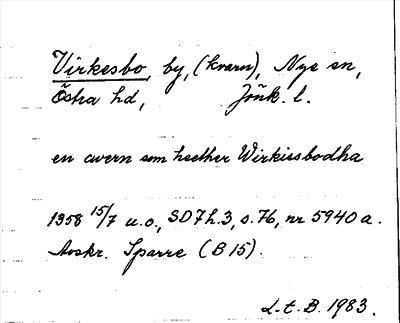 Virkesbo, by, (kvarn), Nye sn,
Östra hd, Jönk. l.
en qvern som heether Wirkissbodha
1358 15/7 u.o., SD 7 h.3, s. 76, nr 5940 a.
Avskr. Sparre (B 15).
L.t.B. 1983.